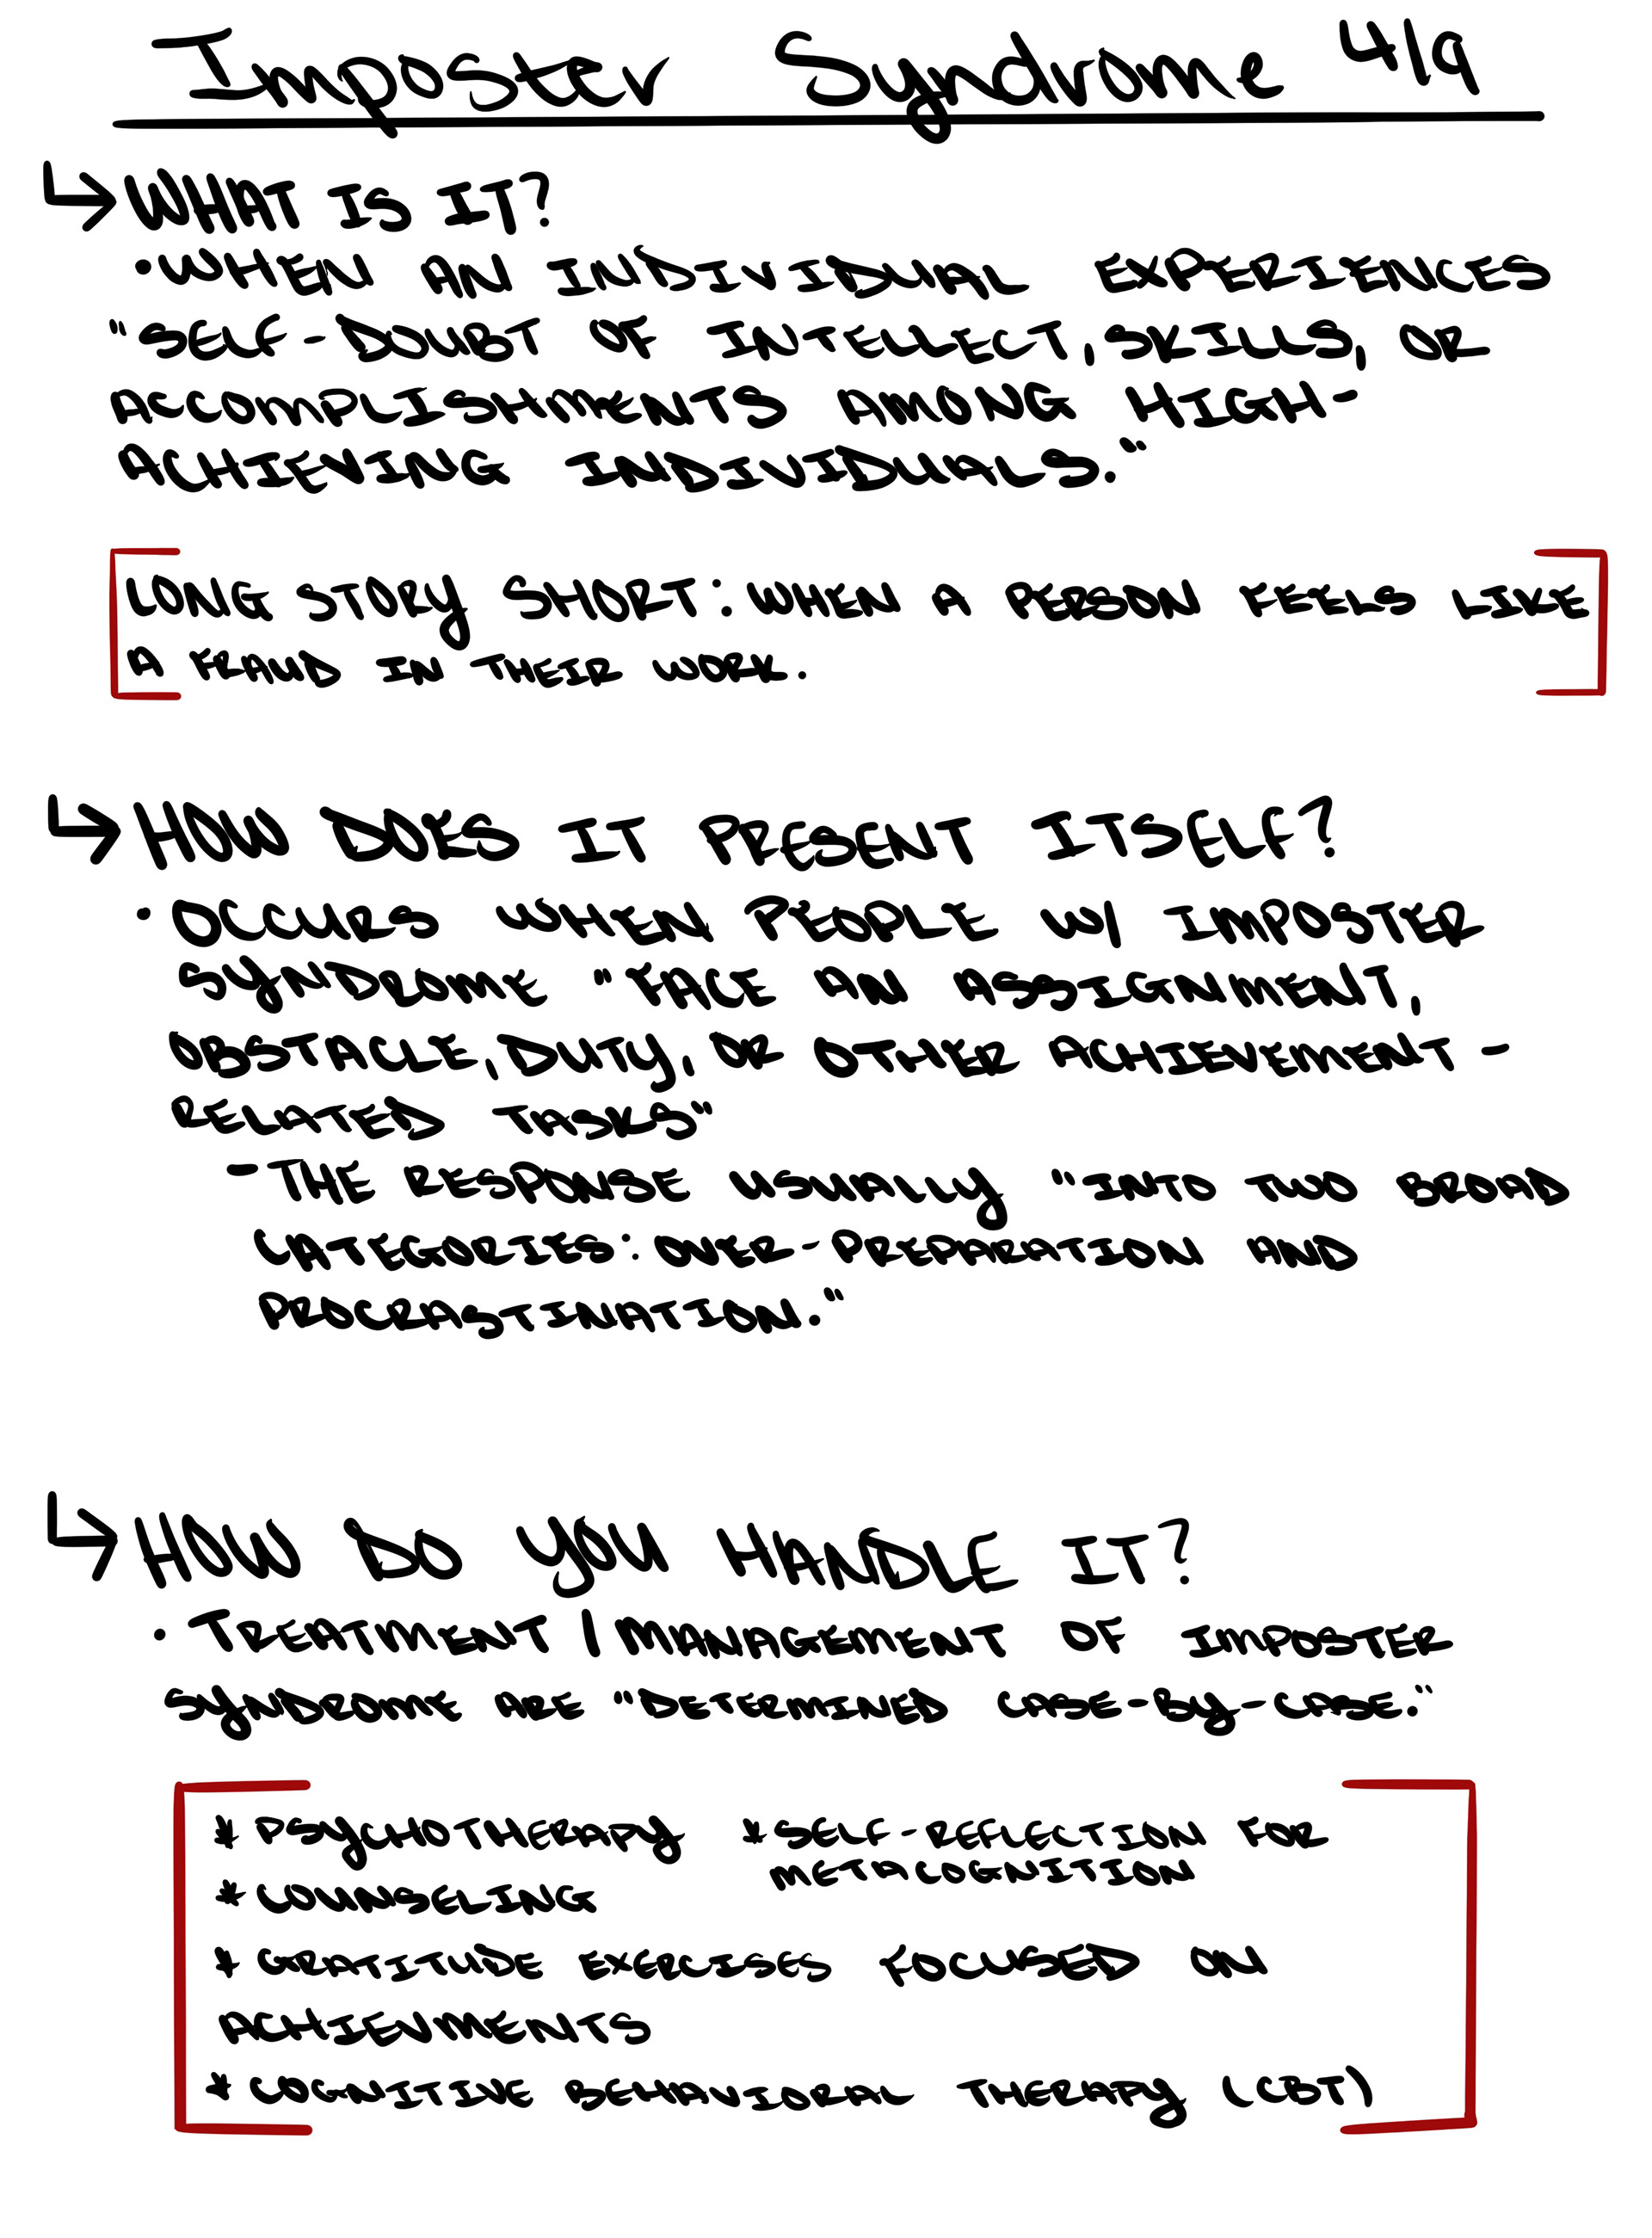 Imposter Syndrome 4/9
↳ WHAT IS IT?
• WHEN AN INDIVIDUAL EXPERIENCES
"SELF-DOUBT OF INTELLECT, SKILLS, OR
ACCOMPLISHMENTS AMONG HIGH-
ACHIEVING INDIVIDUALS."
LONG STORY SHORT: WHEN A PERSON FEELS LIKE
A FRAUD IN THEIR WORK.
↳ HOW DOES IT PRESENT ITSELF?
• OCCURS WHEN PEOPLE W/ IMPOSTER
SYNDROME "FACE AN ASSIGNMENT,
OBSTACLE, DUTY, OR OTHER ACHIEVEMENT-
RELATED TASKS"
- THE RESPONSE USUALLY "INTO TWO BROAD
CATEGORIES: OVER-PREPARATION AND
PROCRASTINATION."
↳ HOW DO YOU HANDLE IT?
• TREATMENT/MANAGEMENT OF IMPOSTER
SYNDROME ARE "DETERMINED CASE-BY-CASE."
* PSYCHOTHERAPY * SELF-REFLECTION FOR
METACOGNITION
* COUNSELING
* GRATITUDE EXERCISES FOCUSED ON
ACHIEVMENTS
* COGNITIVE BEHAVIORAL THERAPY (CBT)